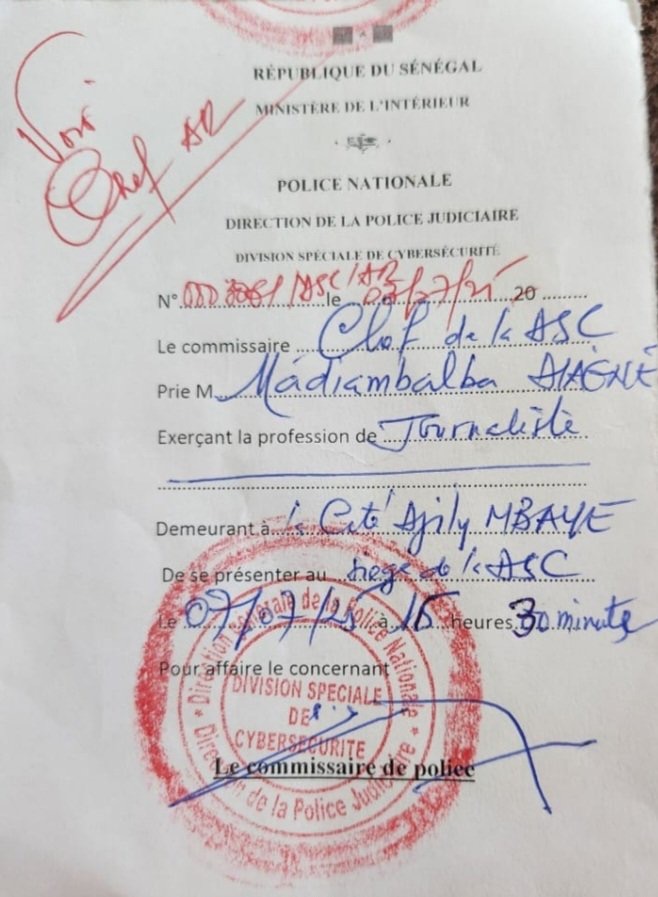 Voir
Chef AR
RÉPUBLIQUE DU SÉNÉGAL
MINISTÈRE DE L'INTÉRIEUR
POLICE NATIONALE
DIRECTION DE LA POLICE JUDICIAIRE
DIVISION SPÉCIALE DE CYBERSÉCURITÉ
N° /ASC/AR le 07/07/25 20
Le commissaire Chef de la ASC
Prie M. Madiambalba DIAGNE
Exerçant la profession de Journaliste
Demeurant à la Cité Djily MBAYE
De se présenter au siege de la ASC
Le 07/07/25 à 15 heures 30 minute
Pour affaire le concernant
Le commissaire de police
Direction Générale de la Police Nationale
DIVISION SPECIALE
DE
CYBERSECURITE
Direction de la Police Judiciaire